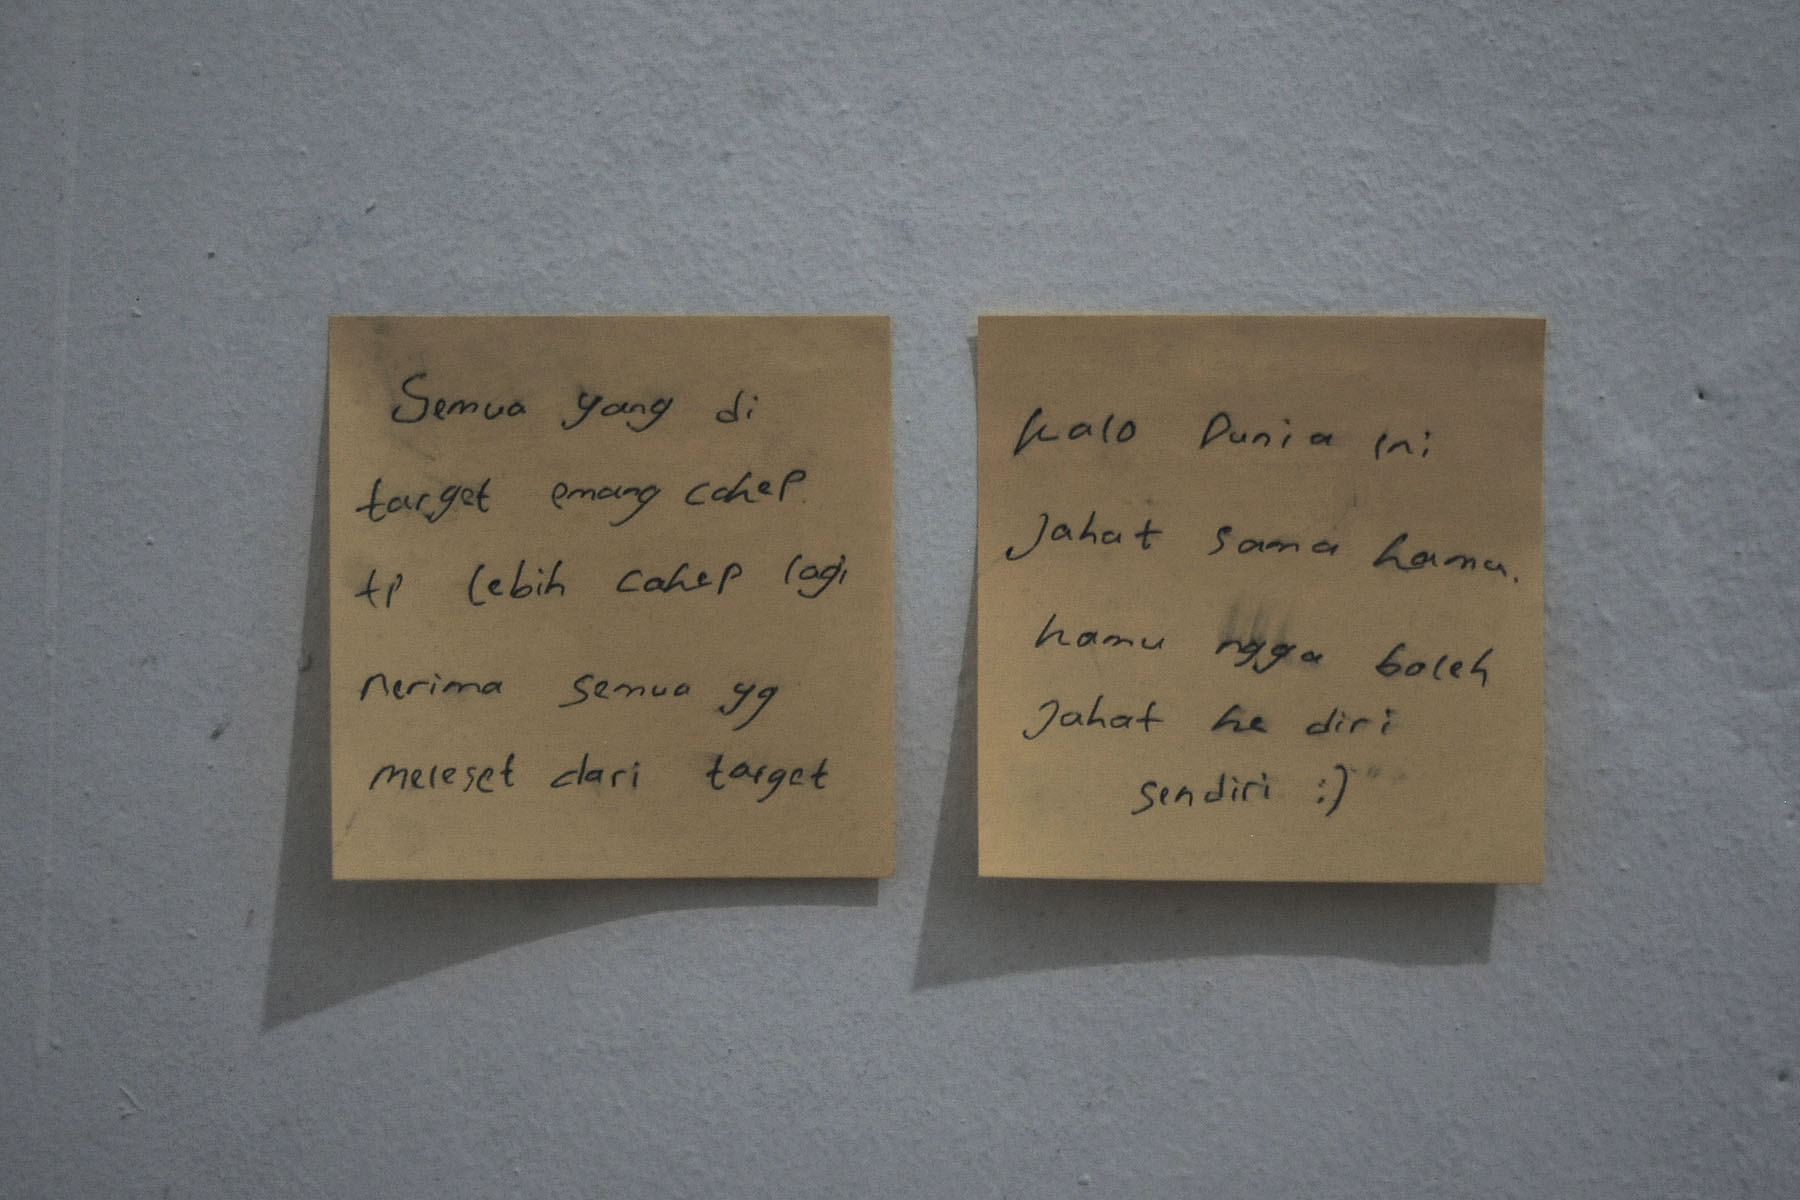 Semua yang di
target emang cakep
tp lebih cakep lagi
nerima semua yg
meleset dari target
kalo Dunia ini
Jahat sama kamu.
kamu ngga boleh
Jahat ke diri
sendiri :)